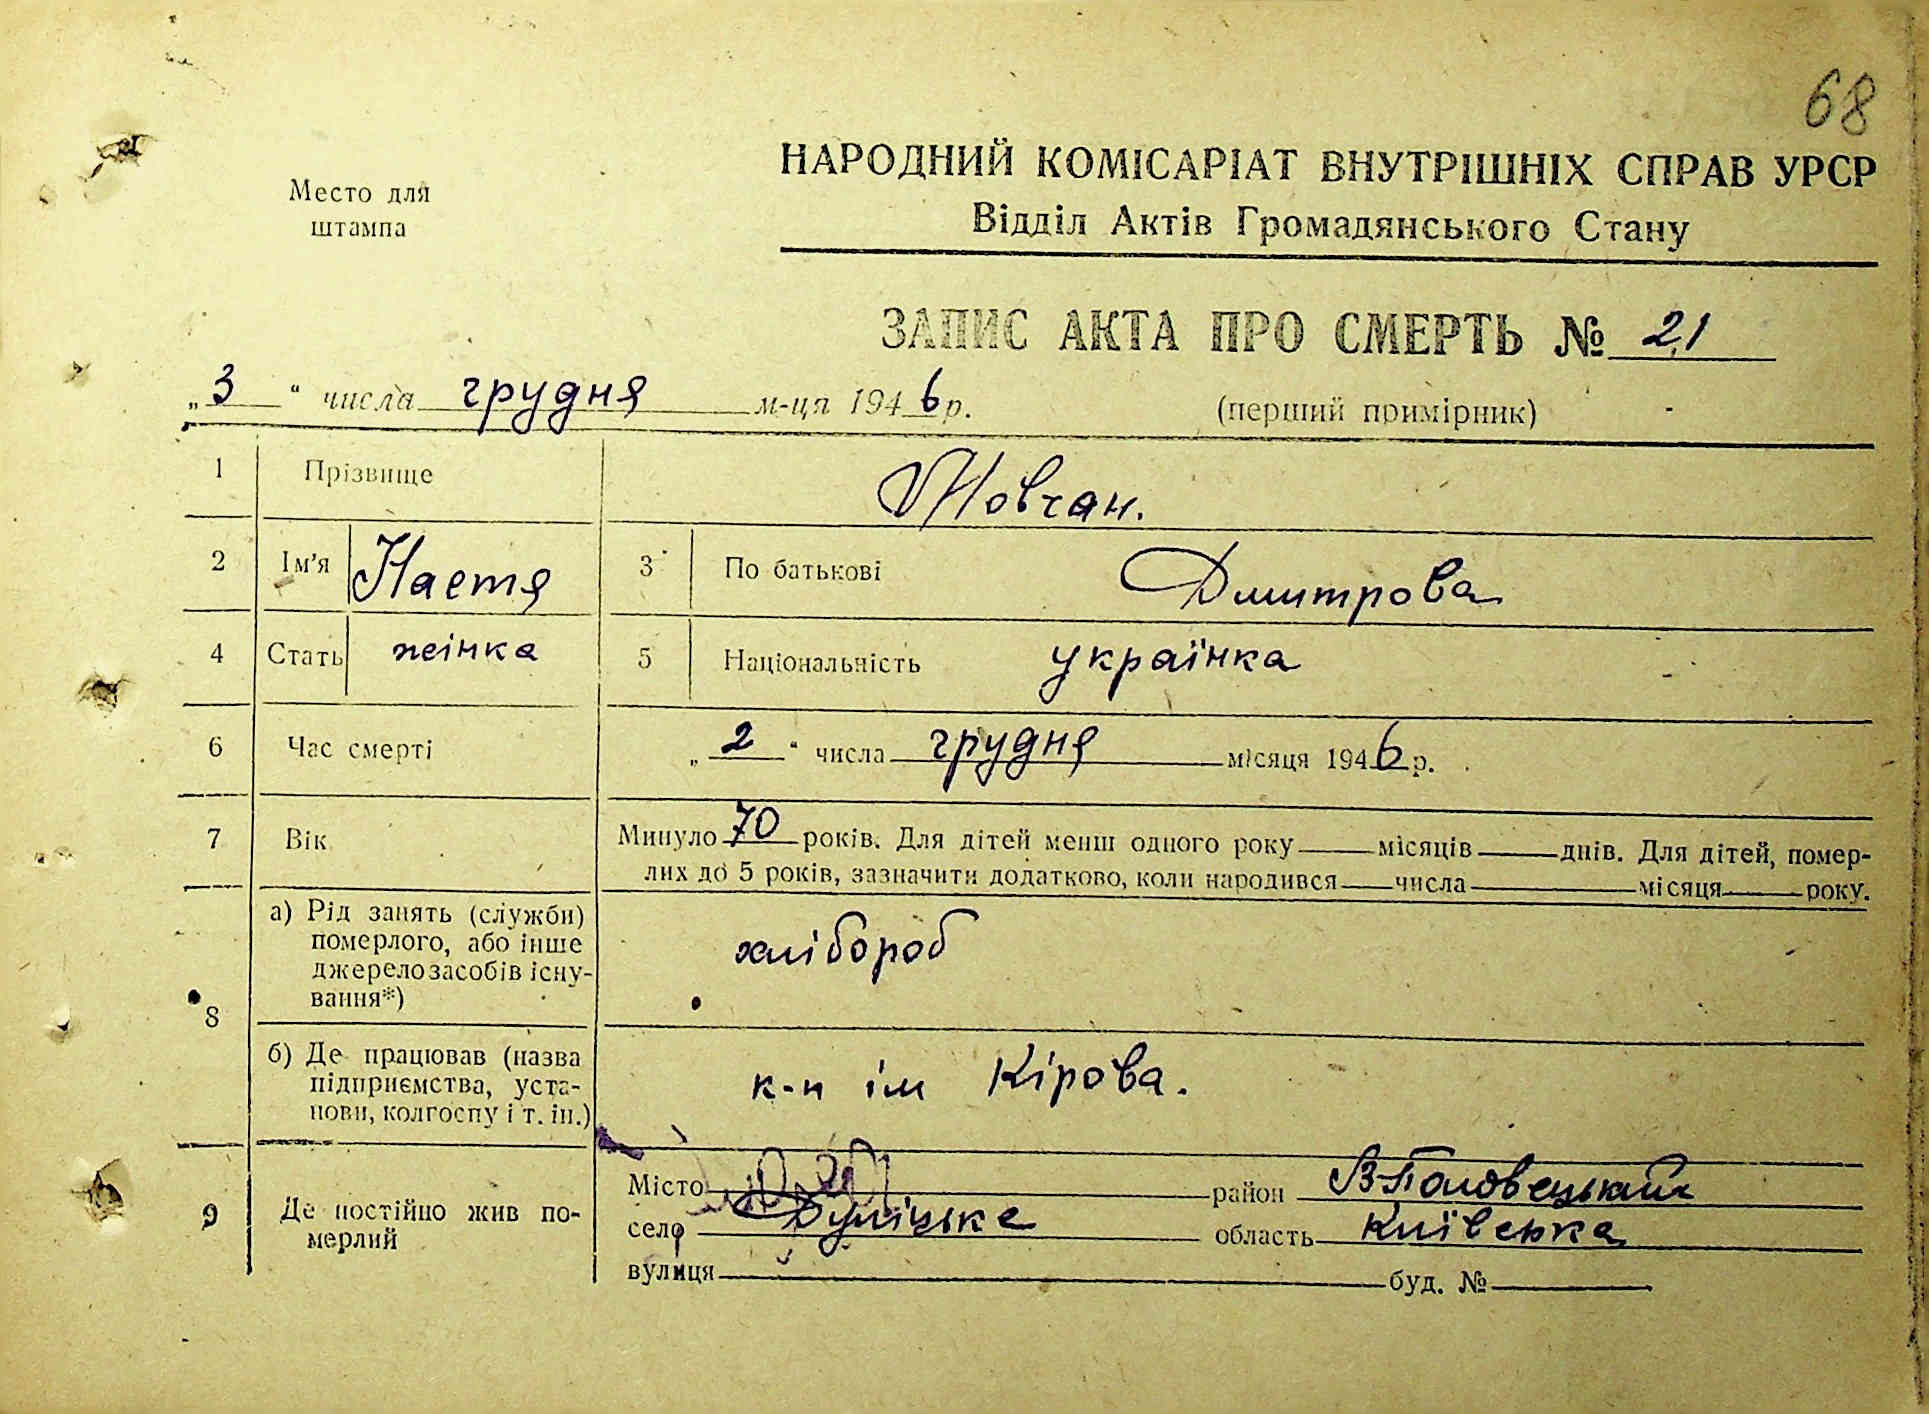 68
Место для
штампа
НАРОДНИЙ КОМІСАРІАТ ВНУТРІШНІХ СПРАВ УРСР
Відділ Актів Громадянського Стану
ЗАПИС АКТА ПРО СМЕРТЬ № 21
„3“ числа грудня м-ця 1946р.
(перший примірник)
1 Прізвище Мовчан.
2 Ім'я Настя 3 По батькові Дмитрова
4 Стать жінка 5 Національність українка
6 Час смерті „2“ числа грудня місяця 1946р.
7 Вік Минуло 70 років. Для дітей менш одного року місяців днів. Для дітей, помер-
лих до 5 років, зазначити додатково, коли народився числа місяця року.
8 а) Рід занять (служби)
померлого, або інше
джерело засобів існу-
вання*)
хлібороб
б) Де працював (назва
підприємства, уста-
нови, колгоспу і т. ін.)
к-п ім Кірова.
9 Де постійно жив по-
мерлий
Місто район В-Половецький
село Дуліцьке область Київська
вулиця буд. №